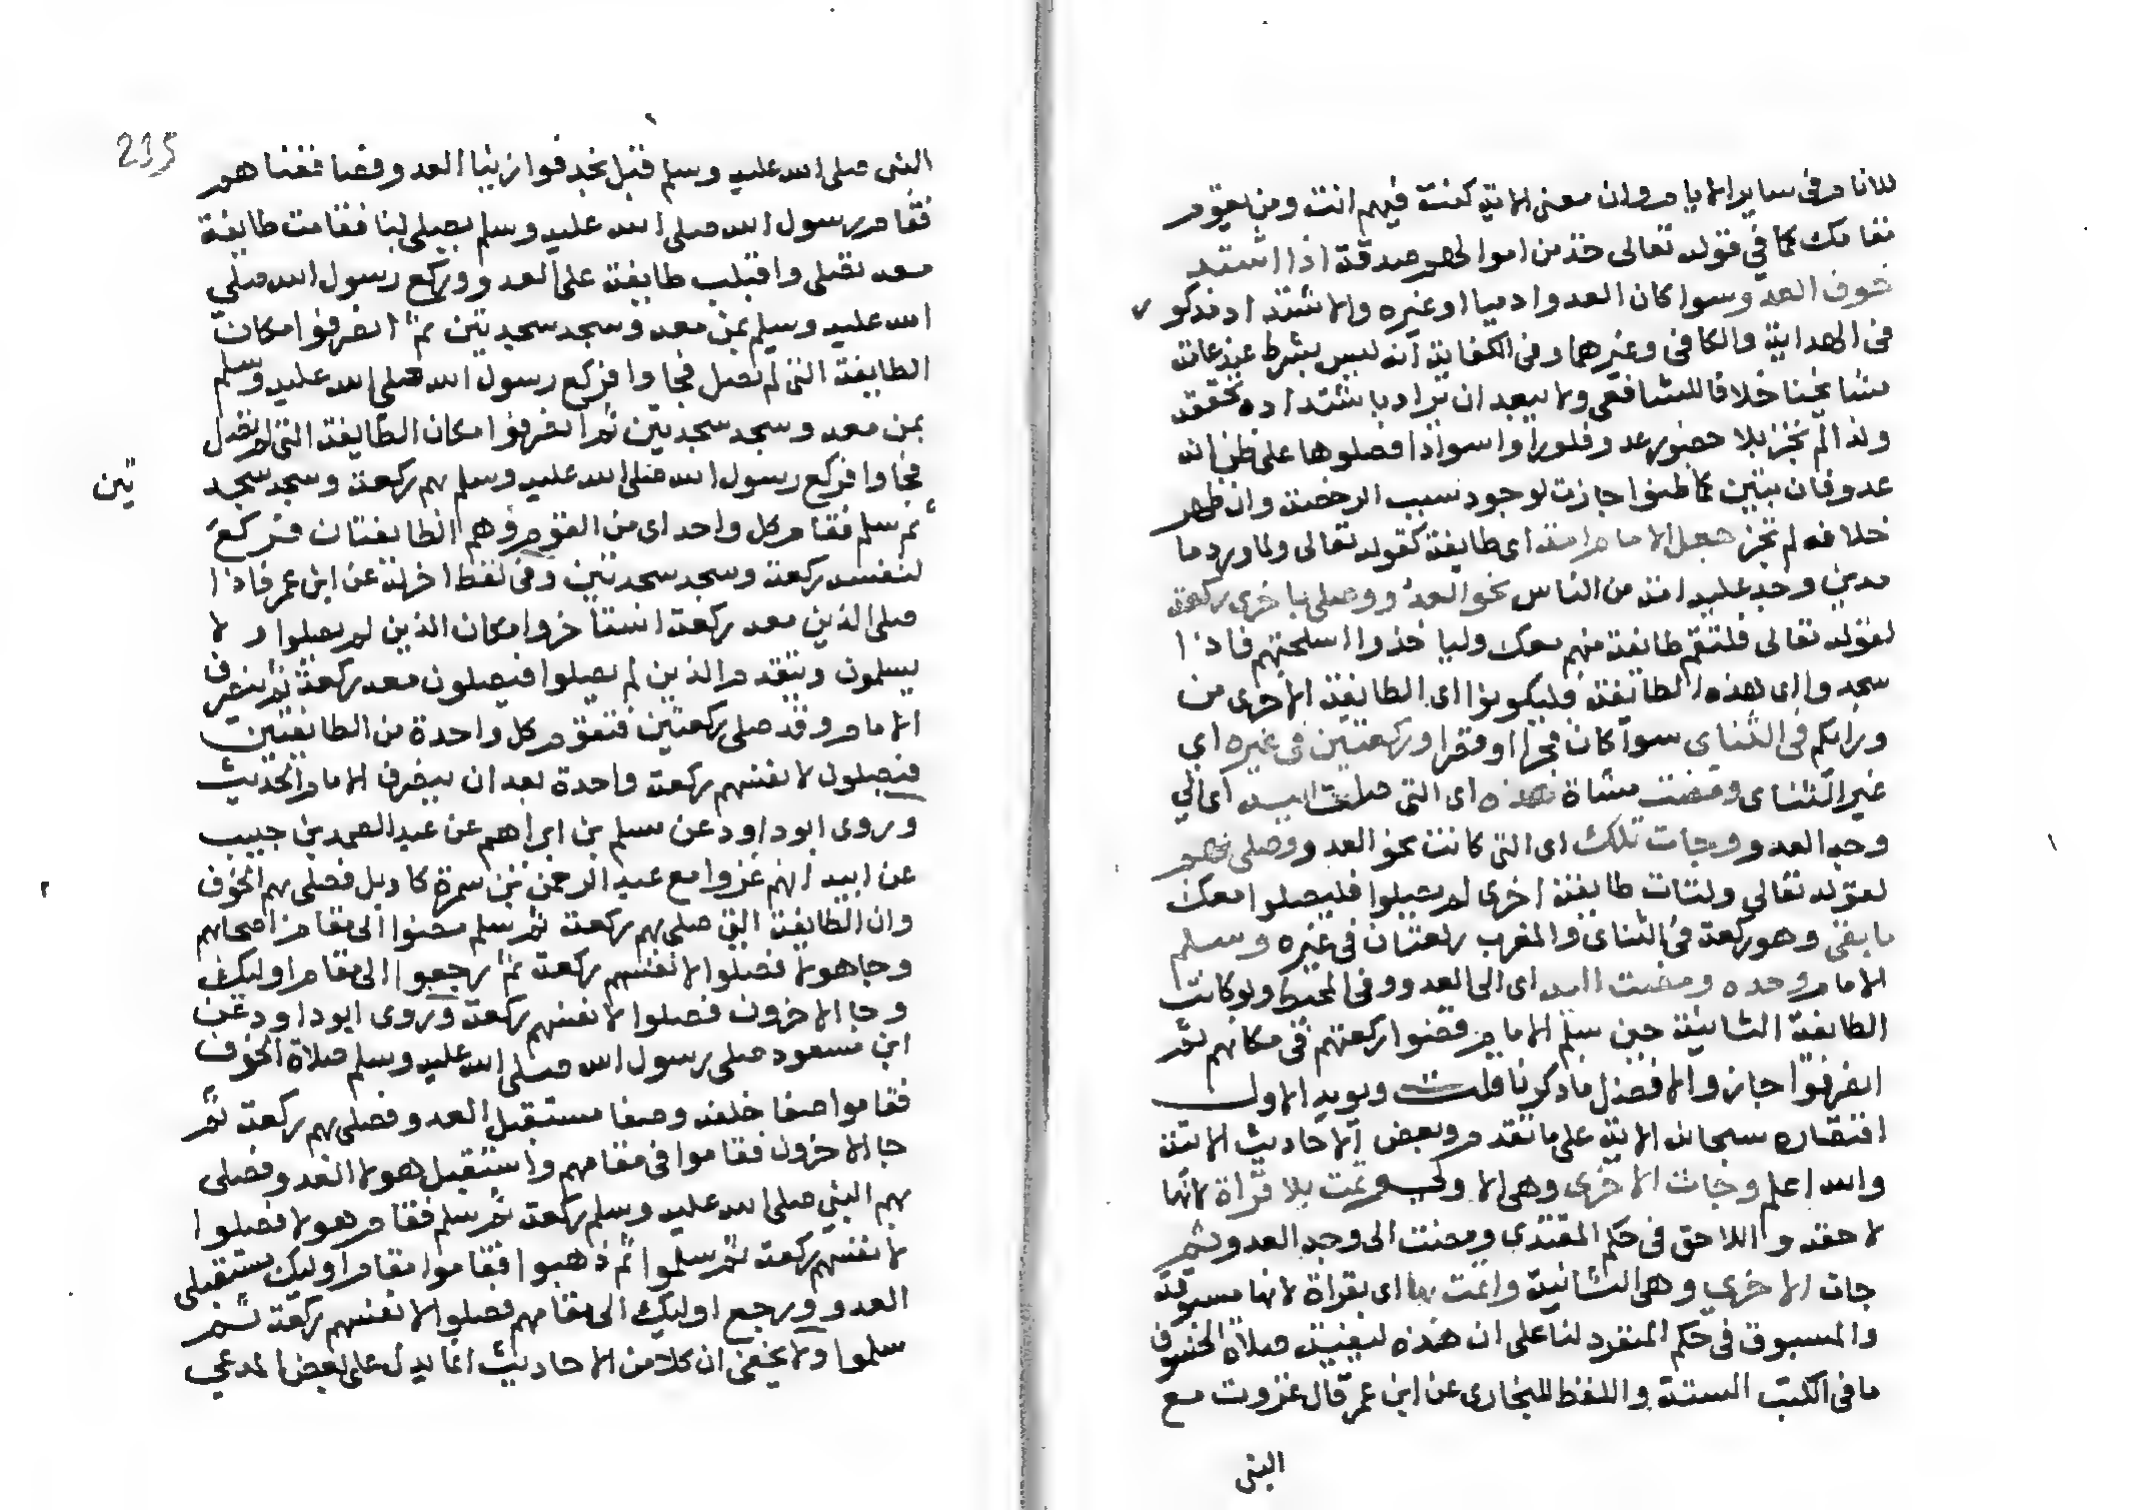 للانام في ساير الايام وان معنى الاية كنت فيهم انت ومن يقوم
مقامك كما في قوله تعالى خذ من اموالهم صدقة اذا اشتد
خوف العدو سوا كان العدو ادميا او غيره والاشتداد مذكور
في الهداية والكافي وغيرهما وفي الكفاية انه ليس بشرط عند عامة
مشايخنا خلافا للشافعي ولا يبعد ان يراد باشتداده تحققه
ولذا لم تجز بلا حضور عدو فلو راوا سوادا فصلوها على ظن انه
عدو فان تبين كما ظنوا جازت لوجود سبب الرخصة وان ظهر
خلافه لم تجز جعل الامام امة اي طايفة كقوله تعالى ولما ورد ما
مدين وجد عليه امة من الناس نحو العدو وصلى باخرى ركعة
لقوله تعالى فلتقم طايفة منهم معك ولياخذوا اسلحتهم فاذا
سجدوا اي هذه الطايفة فليكونوا اي الطايفة الاخرى من
ورايكم في الثناي سوا كان فجرا او قصرا وركعتين في غيره اي
غير الثناي ومضت مشاة هذه اي التي صلت اليه اي الي
وجه العدو وجات تلك اي التي كانت نحو العدو وصلى بهم
لقوله تعالى ولتات طايفة اخرى لم يصلوا فليصلوا معك
ما بقى وهو ركعة في الثناي والمغرب ركعتان في غيره وسلم
الامام وحده ومضت اليه اي الى العدو وفي المحيط ولو كانت
الطايفة الثانية حين سلم الامام قضوا ركعتهم في مكانهم ثم
انصرفوا جاز والافضل ما ذكرنا قلت ويويد الاول
اقتصاره سبحانه الاية على ما تقدم وبعض الاحاديث الاتية
والله اعلم وجات الاخرى وهي الاولى وتمت بلا قراة لانها
لاحقة واللاحق في حكم المقتدي ومضت الى وجه العدو ثم
جات الاخري وهي الثانية واتمت بها اي بقراة لانها مسبوقة
والمسبوق في حكم المنفرد لنا على ان هذه كيفية صلاة الخوف
ما في الكتب الستة واللفظ للبخاري عن ابن عمر قال غزوت مع
النبي
235
النبي صلى الله عليه وسلم قبل نجد فوازينا العدو فصاففناهم
فقام رسول الله صلى الله عليه وسلم يصلي لنا فقامت طايفة
معه تصلى واقبلت طايفة على العدو وركع رسول الله صلى
الله عليه وسلم بمن معه وسجد سجدتين ثم انصرفوا مكان
الطايفة التي لم تصل فجاوا فركع رسول الله صلى الله عليه وسلم
بمن معه وسجد سجدتين ثم انصرفوا مكان الطايفة التي لم تصل
فجاوا فركع رسول الله صلى الله عليه وسلم بهم ركعة وسجد سجد
تين
ثم سلم فقام كل واحد اي من القوم وهم الطايفتان فركع
لنفسه ركعة وسجد سجدتين وفي لفظ اخر له عن ابن عمر فاذا
صلى الذين معه ركعة استاخروا مكان الذين لم يصلوا ولا
يسلمون ويتقدم الذين لم يصلوا فيصلون معه ركعة ثم ينصرف
الامام وقد صلى ركعتين فتقوم كل واحدة من الطايفتين
فيصلون لانفسهم ركعة واحدة بعد ان ينصرف الامام الحديث
وروى ابو داود عن مسلم بن ابراهيم عن عبد الصمد بن حبيب
عن ابيه انهم غزوا مع عبد الرحمن بن سمرة كابل فصلى بهم الخوف
وان الطايفة التي صلى بهم ركعة ثم سلم مضوا الى مقام اصحابهم
وجا هولا فصلوا لانفسهم ركعة ثم رجعوا الى مقام اوليك
وجا الاخرون فصلوا لانفسهم ركعة وروى ابو داود عن
ابن مسعود صلى رسول الله صلى الله عليه وسلم صلاة الخوف
فقاموا صفا خلفه وصفا مستقبل العدو فصلى بهم ركعة ثم
جا الاخرون فقاموا في مقامهم واستقبل هولا العدو فصلى
بهم النبي صلى الله عليه وسلم ركعة ثم سلم فقام هولا فصلوا
لانفسهم ركعة ثم سلموا ثم ذهبوا فقاموا مقام اوليك مستقبلى
العدو ورجع اوليك الى مقامهم فصلوا لانفسهم ركعة ثم
سلموا ولا يخفى ان كلا من الاحاديث انما يدل على بعض المدعي